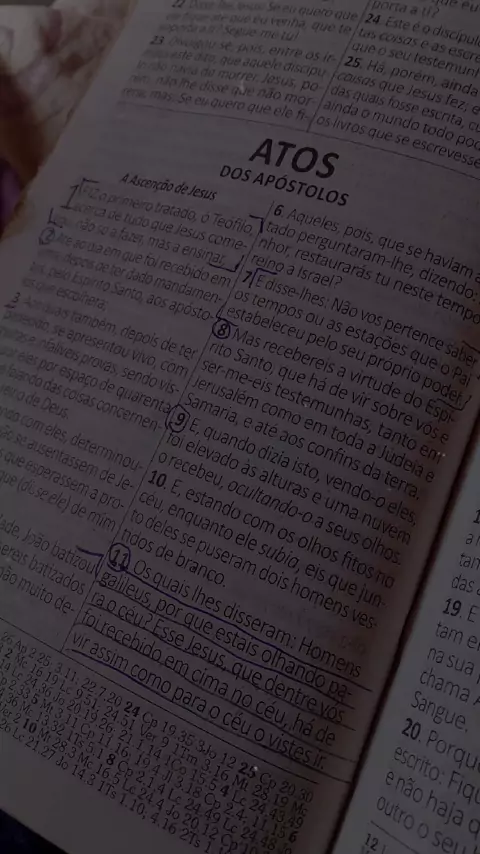 22 Disse-lhe Jesus: Se eu quero que
ele fique até que eu venha, que te
importa a ti? Segue-me tu!
23 Divulgou-se, pois, entre os ir-
mãos este dito, que aquele discípu-
lo não havia de morrer. Jesus, po-
rém, não lhe disse que não mor-
reria, mas: Se eu quero que ele fi-
porta a ti?
24 Este é o discípulo
tas coisas e as escre
que o seu testemunh
25. Há, porém, ainda
coisas que Jesus fez, e
das quais fosse escrita, cu
ainda o mundo todo pod
os livros que se escrevesse
ATOS
DOS APÓSTOLOS
A Ascenção de Jesus
1 FIZ o primeiro tratado, ó Teófilo,
acerca de tudo que Jesus come-
çou, não só a fazer, mas a ensinar,
2 Até ao dia em que foi recebido em
cima, depois de ter dado mandamen-
tos, pelo Espírito Santo, aos apósto-
los que escolhera;
3 Aos quais também, depois de ter
padecido, se apresentou vivo, com
muitas e infalíveis provas, sendo vis-
por eles por espaço de quarenta
e falando das coisas concernen-
reino de Deus.
ando com eles, determinou-
não se ausentassem de Je-
s que esperassem a pro-
que (disse ele) de mim
ade, João batizou
ereis batizados
não muito de-
6. Aqueles, pois, que se haviam a
tado perguntaram-lhe, dizendo:
nhor, restaurarás tu neste tempo
reino a Israel?
7 E disse-lhes: Não vos pertence saber
os tempos ou as estações que o Pai
estabeleceu pelo seu próprio poder.
8 Mas recebereis a virtude do Espí-
rito Santo, que há de vir sobre vós e
ser-me-eis testemunhas, tanto em
Jerusalém como em toda a Judeia e
Samaria, e até aos confins da terra.
9 E, quando dizia isto, vendo-o eles,
foi elevado às alturas e uma nuvem
o recebeu, ocultando-o a seus olhos.
10. E, estando com os olhos fitos no
céu, enquanto ele subia, eis que jun-
to deles se puseram dois homens ves-
tidos de branco.
11 Os quais lhes disseram: Homens
galileus, por que estais olhando pa-
ra o céu? Esse Jesus, que dentre vós
foi recebido em cima no céu, há de
vir assim como para o céu o vistes ir.
19. E
tam e
na sua
chama A
Sangue.
20. Porque
escrito: Fiqu
e não haja q
outro o seu